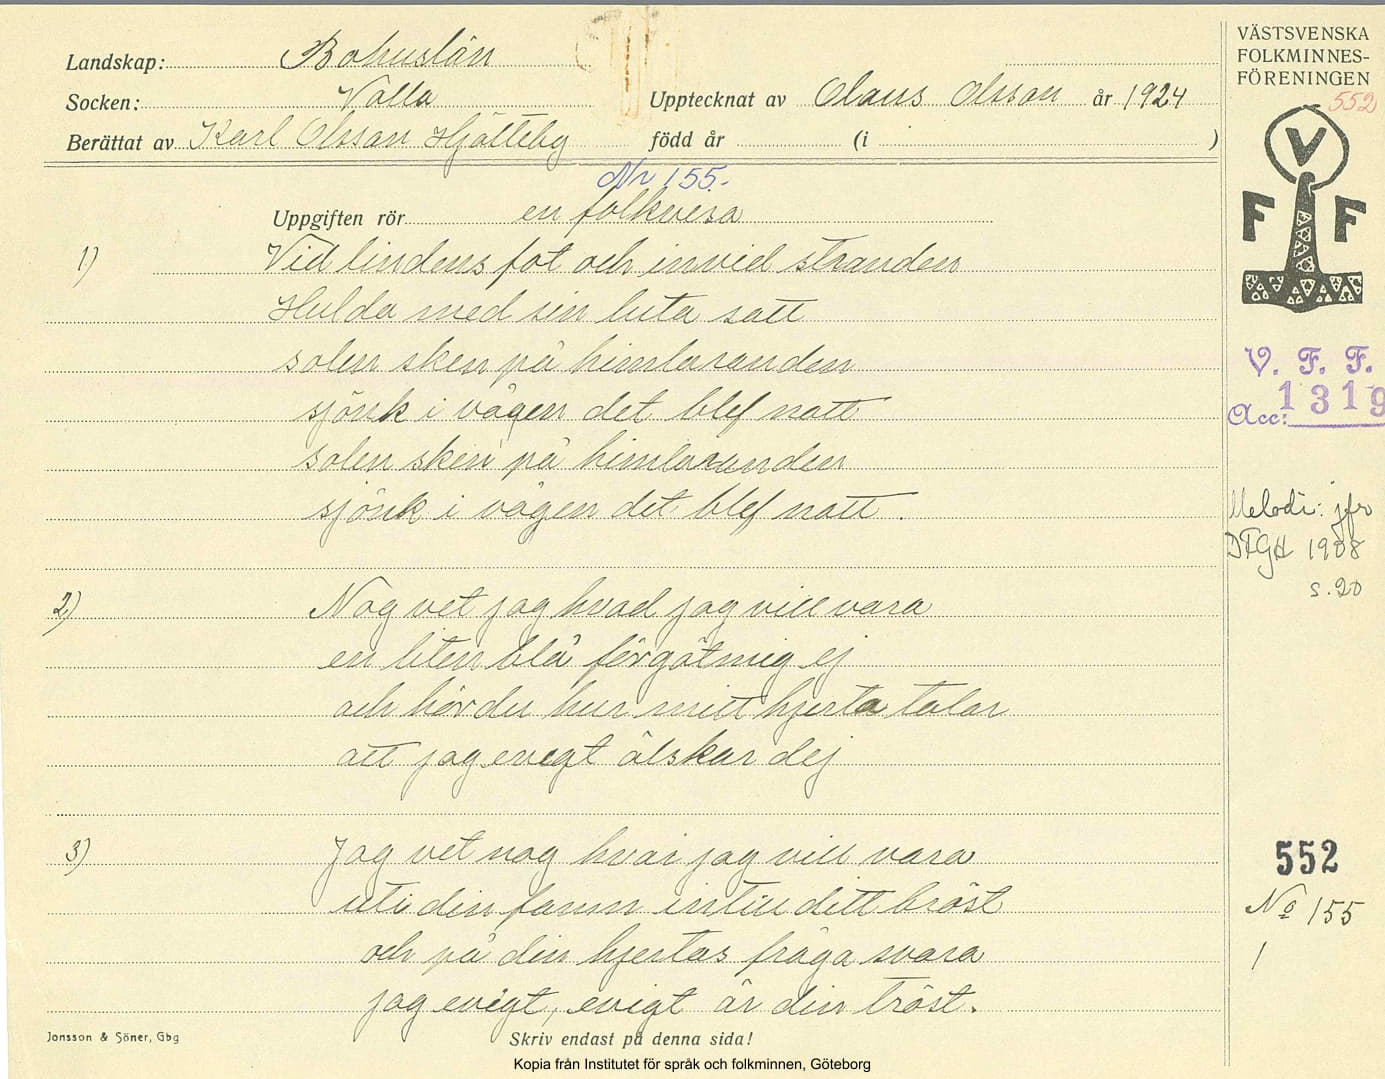 Landskap: Bohuslän
Socken: Valla
Upptecknat av Olaus Olsson år 1924
Berättat av Karl Olsson Hjälteby född år (i )
Nr 155.
Uppgiften rör en folkvisa
1) Vid lindens fot och invid stranden
Hulda med sin luta satt
solen sken på himlaranden
sjönk i vågen det blef natt
solen sken på himlaranden
sjönk i vågen det blef natt.
2) Nog vet jag hvad jag vill vara
en liten blå förgätmig ej
och hör du hur mitt hjerta talar
att jag evigt älskar dej
3) Jag vet nog hvar jag vill vara
uti din famn intill ditt bröst
och på din hjertas fråga svara
jag evigt, evigt är din tröst.
Jonsson & Söner, Gbg
Skriv endast på denna sida!
Kopia från Institutet för språk och folkminnen, Göteborg
VÄSTSVENSKA
FOLKMINNES-
FÖRENINGEN
552
V
F F
V. F. F.
Acc: 1319
Melodi: jfr
DFGH 1908
s. 20
552
No 155
1